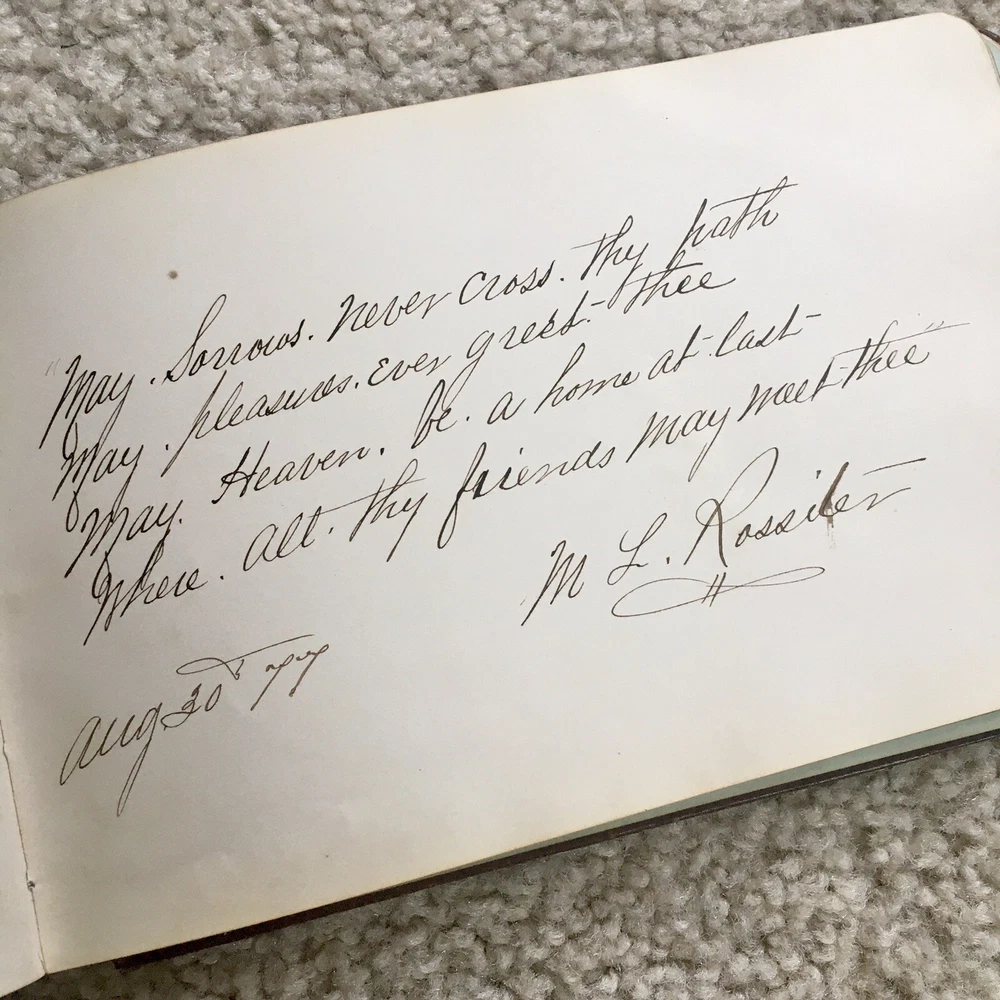 "May. Sorrows. Never Cross. Thy path
May. pleasures. Ever greet- thee
May. Heaven. be. a home at last-
Where. All. thy friends May meet thee"
M L. Rossiter
Aug 30 77